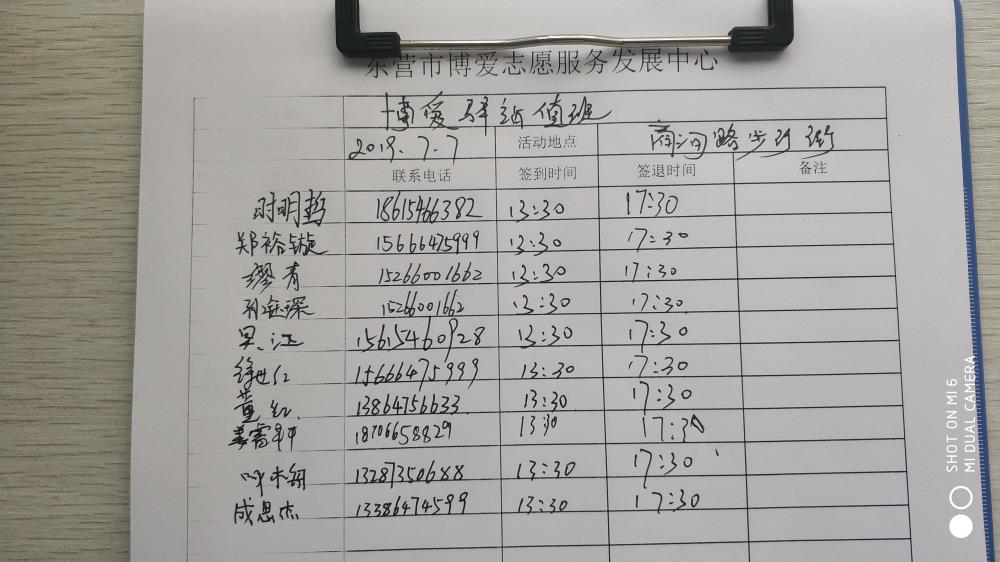 东营市博爱志愿服务发展中心
博爱驿站值班
2019.7.7 活动地点 商河路步行街
联系电话 签到时间 签退时间 备注
时明哲 18615466382 13:30 17:30
郑裕璇 15666475999 13:30 17:30
缪青 15266001662 13:30 17:30
15266001662 13:30 17:30
吴江 15615460928 13:30 17:30
徐世仁 15666475999 13:30 17:30
董红 13864756633 13:30 17:30
姜睿轩 18706658829 13:30 17:30
13287350688 13:30 17:30
成思杰 13386474599 13:30 17:30
SHOT ON MI 6
MI DUAL CAMERA